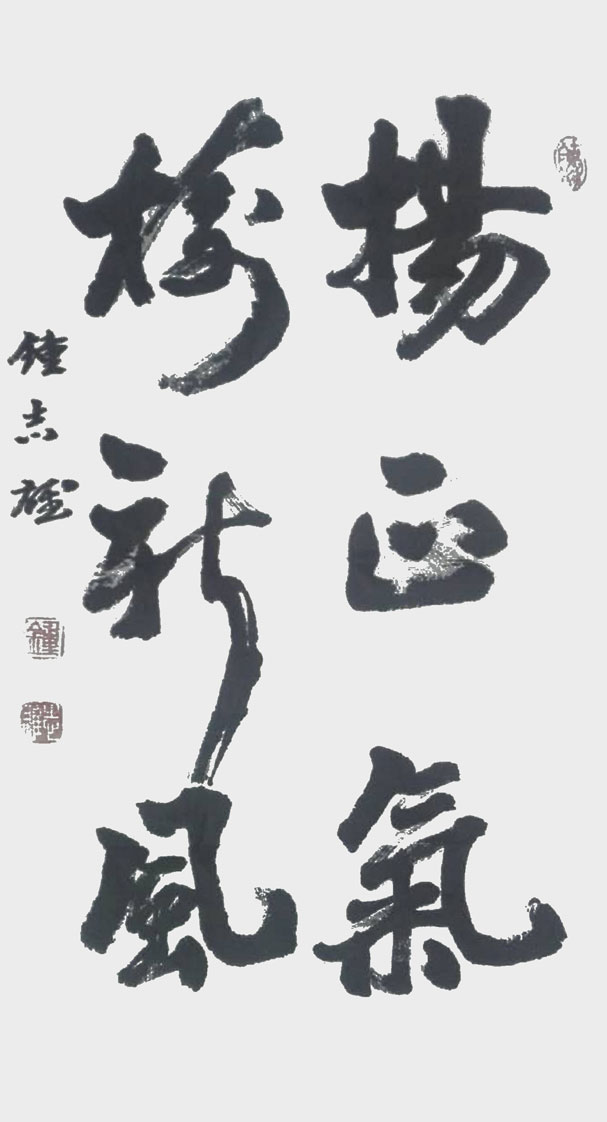 揚正氣
樹新風
鍾志雄
鍾